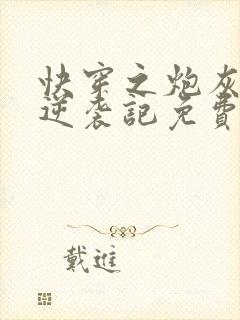 快穿之炮灰
逆袭記免費
戴進